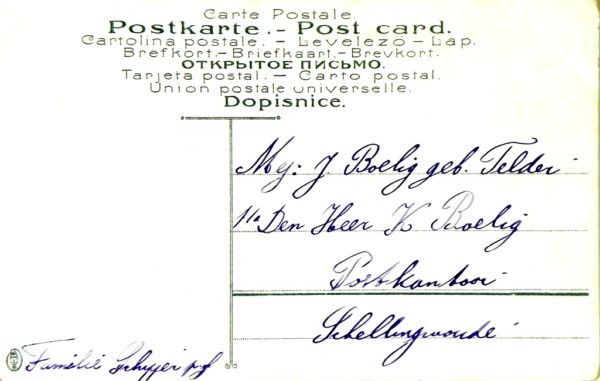 Carte Postale.
Postkarte. - Post card.
Cartolina postale. - Levelező - Lap.
Brefkort. - Briefkaart. - Brevkort.
ОТКРЫТОЕ ПИСЬМО.
Tarjeta postal. - Carto postal.
Union postale universelle.
Dopisnice.
Mej: J. Boelig geb. Telder
Den Heer K Boelig
Postkantoor
Schellingwoude
Familie